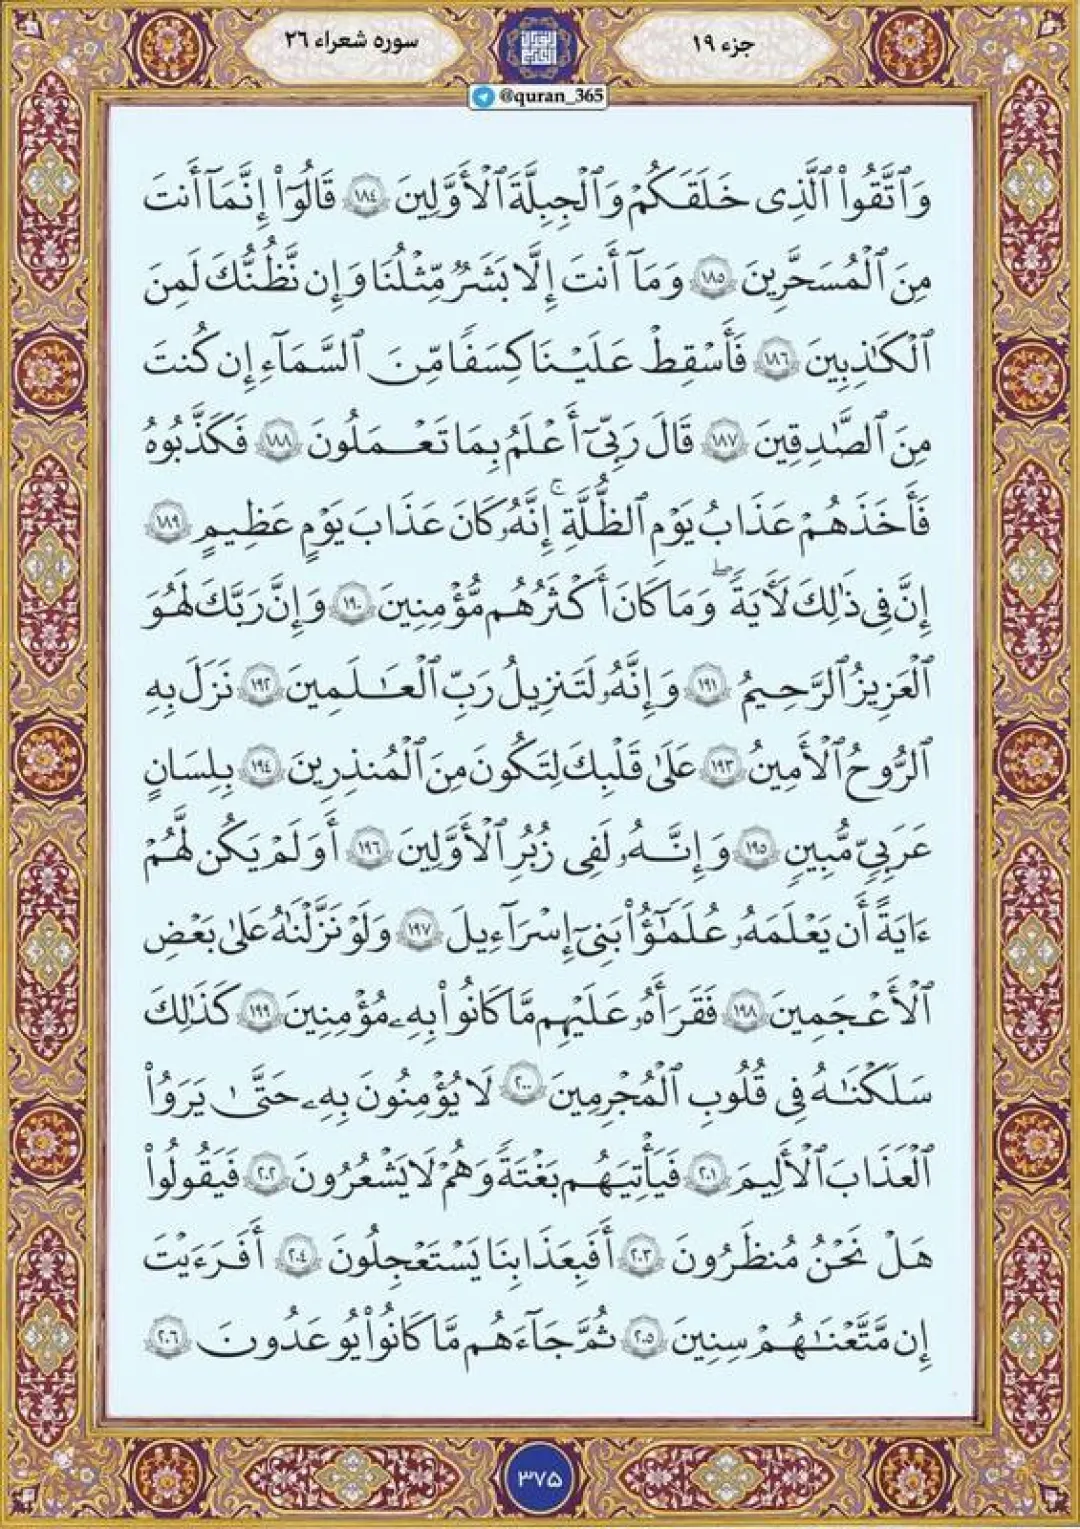 جزء ۱۹
سوره شعراء ۲۶
@quran_365
وَٱتَّقُوا۟ ٱلَّذِى خَلَقَكُمْ وَٱلْجِبِلَّةَ ٱلْأَوَّلِينَ ١٨٤ قَالُوٓا۟ إِنَّمَآ أَنتَ
مِنَ ٱلْمُسَحَّرِينَ ١٨٥ وَمَآ أَنتَ إِلَّا بَشَرٌ مِّثْلُنَا وَإِن نَّظُنُّكَ لَمِنَ
ٱلْكَـٰذِبِينَ ١٨٦ فَأَسْقِطْ عَلَيْنَا كِسَفًا مِّنَ ٱلسَّمَآءِ إِن كُنتَ
مِنَ ٱلصَّـٰدِقِينَ ١٨٧ قَالَ رَبِّىٓ أَعْلَمُ بِمَا تَعْمَلُونَ ١٨٨ فَكَذَّبُوهُ
فَأَخَذَهُمْ عَذَابُ يَوْمِ ٱلظُّلَّةِ ۚ إِنَّهُۥ كَانَ عَذَابَ يَوْمٍ عَظِيمٍ ١٨٩
إِنَّ فِى ذَٰلِكَ لَـَٔايَةً ۖ وَمَا كَانَ أَكْثَرُهُم مُّؤْمِنِينَ ١٩٠ وَإِنَّ رَبَّكَ لَهُوَ
ٱلْعَزِيزُ ٱلرَّحِيمُ ١٩١ وَإِنَّهُۥ لَتَنزِيلُ رَبِّ ٱلْعَـٰلَمِينَ ١٩٢ نَزَلَ بِهِ
ٱلرُّوحُ ٱلْأَمِينُ ١٩٣ عَلَىٰ قَلْبِكَ لِتَكُونَ مِنَ ٱلْمُنذِرِينَ ١٩٤ بِلِسَانٍ
عَرَبِىٍّ مُّبِينٍ ١٩٥ وَإِنَّهُۥ لَفِى زُبُرِ ٱلْأَوَّلِينَ ١٩٦ أَوَلَمْ يَكُن لَّهُمْ
ءَايَةً أَن يَعْلَمَهُۥ عُلَمَـٰٓؤُا۟ بَنِىٓ إِسْرَٰٓءِيلَ ١٩٧ وَلَوْ نَزَّلْنَـٰهُ عَلَىٰ بَعْضِ
ٱلْأَعْجَمِينَ ١٩٨ فَقَرَأَهُۥ عَلَيْهِم مَّا كَانُوا۟ بِهِۦ مُؤْمِنِينَ ١٩٩ كَذَٰلِكَ
سَلَكْنَـٰهُ فِى قُلُوبِ ٱلْمُجْرِمِينَ ٢٠٠ لَا يُؤْمِنُونَ بِهِۦ حَتَّىٰ يَرَوُا۟
ٱلْعَذَابَ ٱلْأَلِيمَ ٢٠١ فَيَأْتِيَهُم بَغْتَةً وَهُمْ لَا يَشْعُرُونَ ٢٠٢ فَيَقُولُوا۟
هَلْ نَحْنُ مُنظَرُونَ ٢٠٣ أَفَبِعَذَابِنَا يَسْتَعْجِلُونَ ٢٠٤ أَفَرَءَيْتَ
إِن مَّتَّعْنَـٰهُمْ سِنِينَ ٢٠٥ ثُمَّ جَآءَهُم مَّا كَانُوا۟ يُوعَدُونَ ٢٠٦
۳۷۵